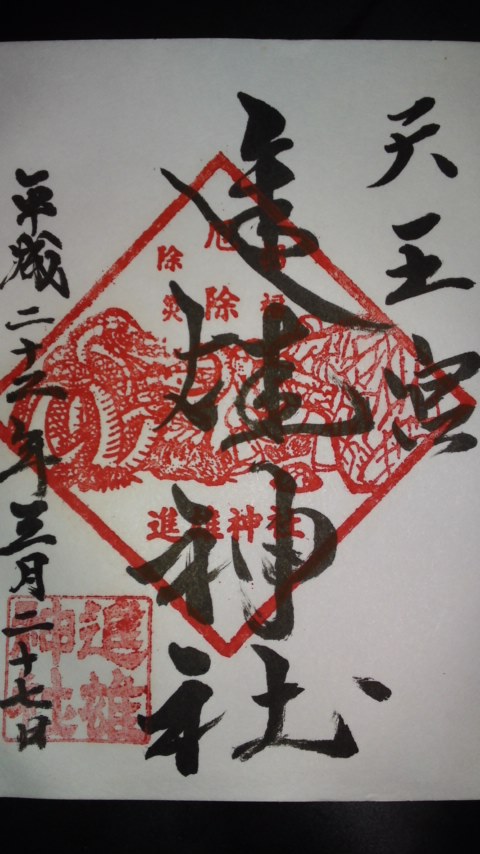 天王宮
進雄神社
厄除
除災
進雄神社
平成二十二年三月二十七日
進雄神社